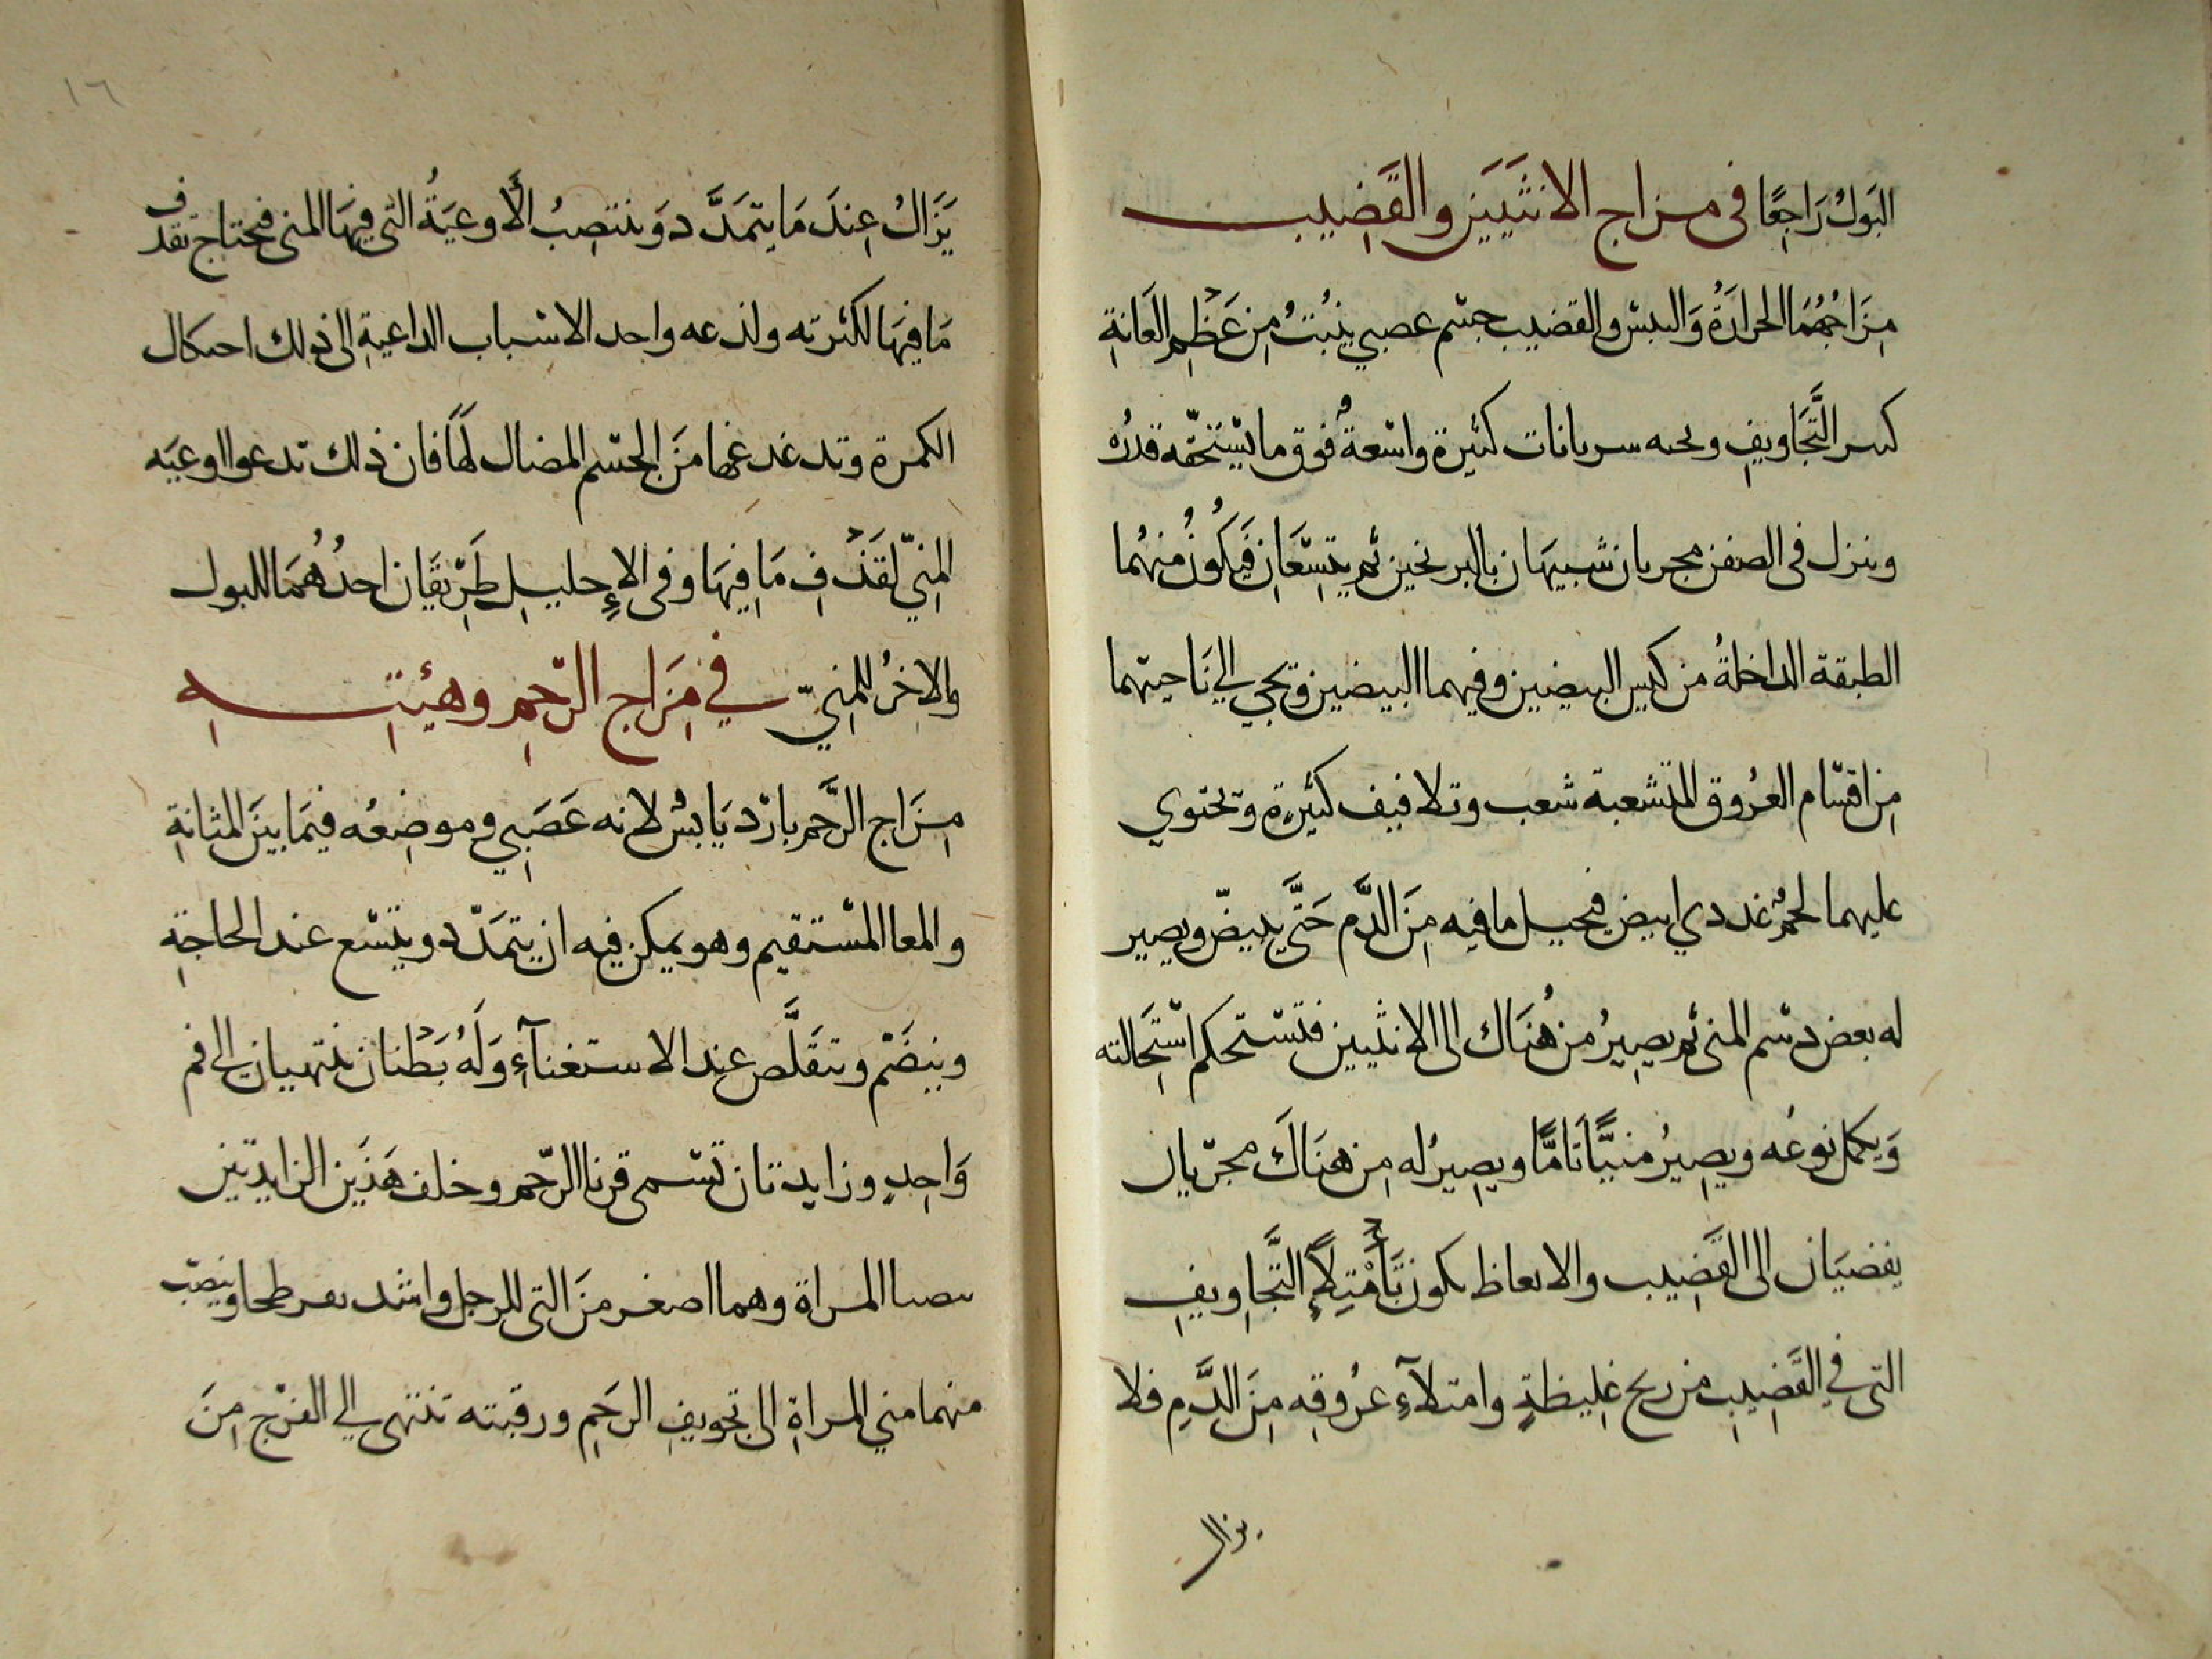 البَولُ رَاجِعًا في مزاج الانثَيَين والقَضِيب
مِزَاجُهُمَا الحرارَةُ وَاليبس والقضيب جسم عصبي ينبُتُ مِن عَظْمِ العَانةِ
كسر التَّجَاويفِ وبحته سريانات كثيرة واسعةٌ فوق ما يستحقّه قدرُه
وينزل في الصفن مجريان شبيهَان بالبرنخين ثم يتِسعَانِ فَيَكُونُ منهُما
الطبقة الداخلةُ من كيس البيضين وفيهما البيضين وتجي إلي نَاحيتهما
مِن اقسام العرُوق المتشعبة شعب وتلافيف كثيرةٍ وتحتوي
عليهما لحمٌ غددي ابيض فيحيل ما فيه مِنَ الدَّم حَتَّي يبيضّ ويصير
له بعض دسم المني ثم يصِيرُ من هُنَاك الى الانثيين فتستحكم استِحَالته
وَيكمل نوعُه ويصِيرُ منيًّا تَامًّا ويصِيرُ له مِن هنَاكَ مجرّيان
يفضيَان الى القَضِيب والانعاظ يكون بَأمْتِلاءِ التَّجاوِيفِ
التي في القَضِيبِ من ريح غلِيظةٍ وامتلآءِ عرُوقِه مِنَ الدَّمِ فلا
يزال
١٦
يَزَالُ عِندَ مَا يتمَدَّد وَينتصِبُ الأَوعيَةُ التي فيهَا المني فيحتاج تقذف
مَا فيهَا لكثرته ولذعه واحد الاسباب الداعيةِ الى ذلك احتكاك
الكمرة وتدغدغها مَن الجسم المضال لهَا فان ذلك تدعوا اوعيَه
المِنيّ لقَذْفِ مَا فِيهَا وفي الاحليلِ طَرِيقَان احدُهُمَا للبول
والاخِرُ للمِنيّ في مِزَاج الرّحِمِ وهيئتِهِ
مِزَاج الرَّحم باردْ يَابسٌ لانه عَصَبِي وموضِعُه فيمَا بيَن المثانةِ
والمعا المستقيم وهو يمكن فيه ان يتمَدّد ويتسع عند الحاجةِ
وينضَمْ وتتقَلَّص عند الاستغنآءِ وَلَهُ بَطْنان ينتهيان إلى فم
وَاحِدٍ وزايدتان تسمى قرنا الرّحم وخلف هَذَين الزايدتين
بيضتا المراة وهما اصغر مَن التي للرجل واشد تفرطحا وينصّب
منهما مني المراةِ الى تجويفِ الرحَمِ ورقبته تنتهى إلي الفرْج مِنَ